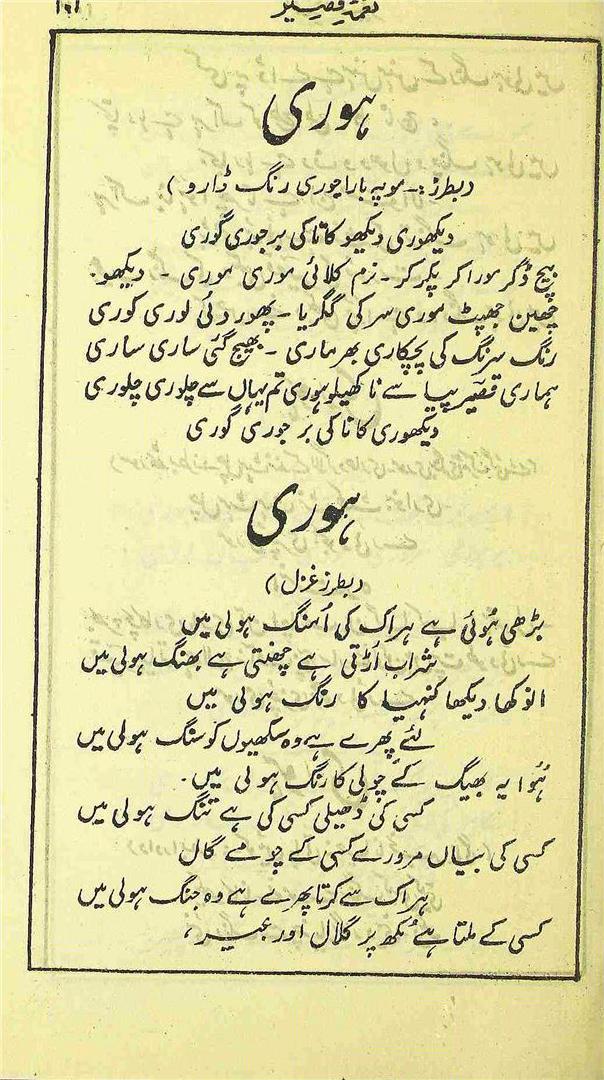 نغمۂ قیصر
ہوری
(بطرز:۔ موپہ بارا جوری رنگ ڈارو)
دیکھوری دیکھو کانا کی برجوری گوری
بیچ ڈگر مورا کر پکر کر۔ نرم کلائی موری موری ۔ دیکھو۔
چھین جھپٹ موری سر کی گگریا ۔ پھور دئی لوری کوری
رنگ سرنگ کی پچکاری بھر ماری ۔ بھیج گئی ساری ساری
ہماری قصیر پیا سے نا کھیلو ہوری تم یہاں سے چلوری چلوری
دیکھوری کانا کی بر جوری گوری
ہوری
(بطرز غزل)
بڑھی ہُوئی ہے ہراک کی اُمنگ ہولی میں
شراب اُڑتی ہے چھنتی ہے بھنگ ہولی میں
انوکھا دیکھا کنہیا کا رنگ ہولی میں
لئے پھرے ہے وہ سکھیوں کو سنگ ہولی میں
ہُوا یہ بھیگ کے چولی کا رنگ ہولی میں۔
کسی کی ڈھیلی کسی کی ہے تنگ ہولی میں
کسی کی بیاں مرورے کسی کے چومے گال
ہراک سے کرتا پھرے ہے وہ جنگ ہولی میں
کسی کے ملتا ہے مُکھ پر گلال اور عبیر،